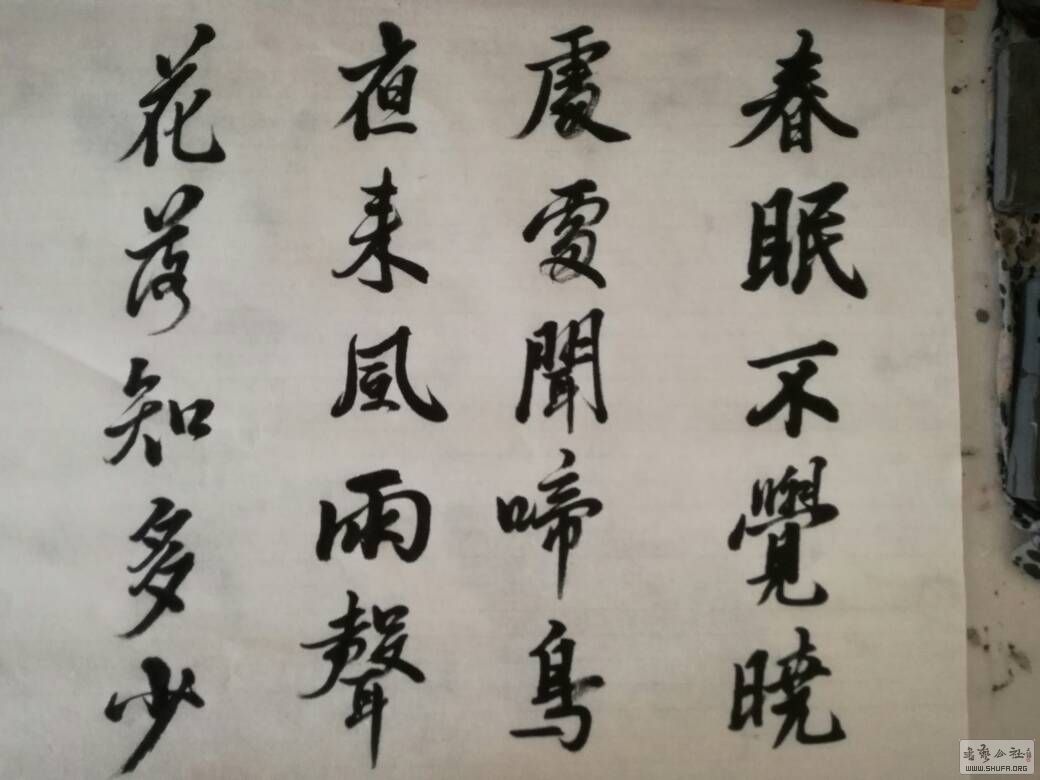 春眠不覺曉
處處聞啼鳥
夜来風雨聲
花落知多少
書藝公社
WWW.SHUFA.ORG